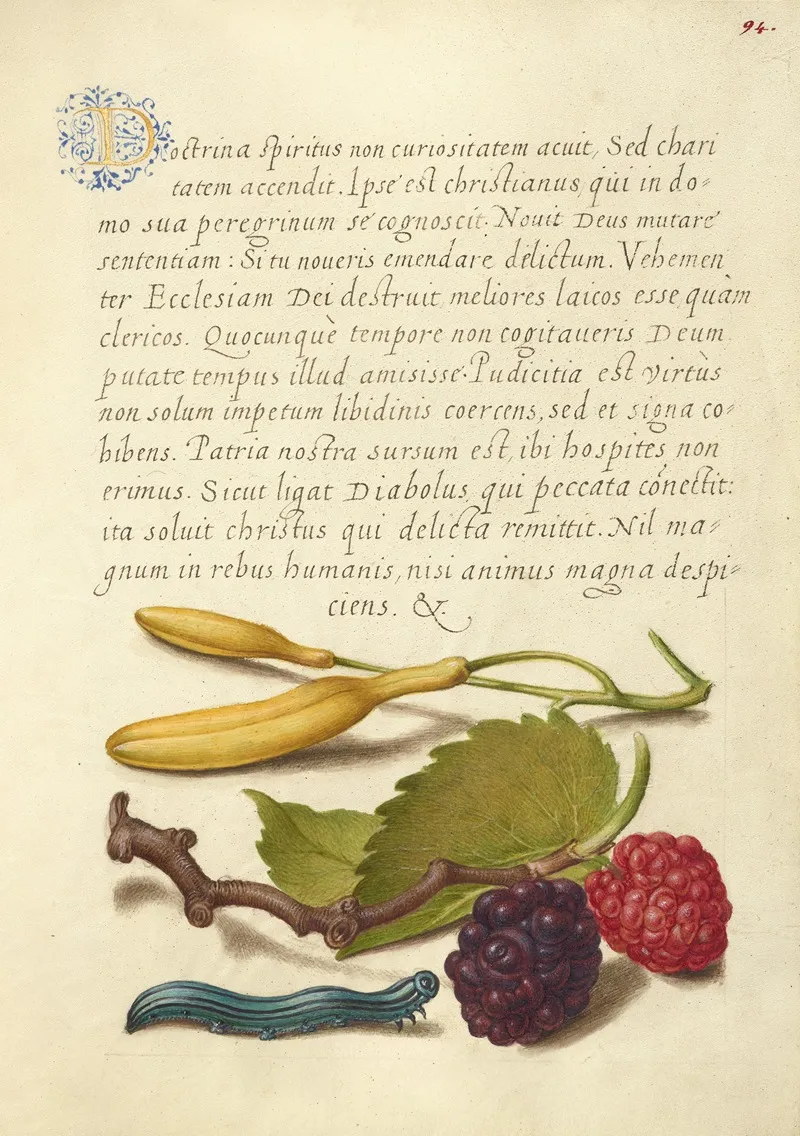 94.
Doctrina spiritus non curiositatem acuit, Sed chari
tatem accendit. Ipse est christianus, qui in do=
mo sua peregrinum se cognoscit. Nouit Deus mutare
sententiam : Si tu noueris emendare delictum. Vehemen
ter Ecclesiam Dei destruit meliores laicos esse quàm
clericos. Quocunquè tempore non cogitaueris Deum
putate tempus illud amisisse. Pudicitia est virtùs
non solum impetum libidinis coercens, sed et signa co=
hibens. Patria nostra sursum est, ibi hospites non
erimus. Sicut ligat Diabolus, qui peccata cónectit:
ita soluit christus qui delicta remittit. Nil ma=
gnum in rebus humanis, nisi animus magna despi=
ciens. &.